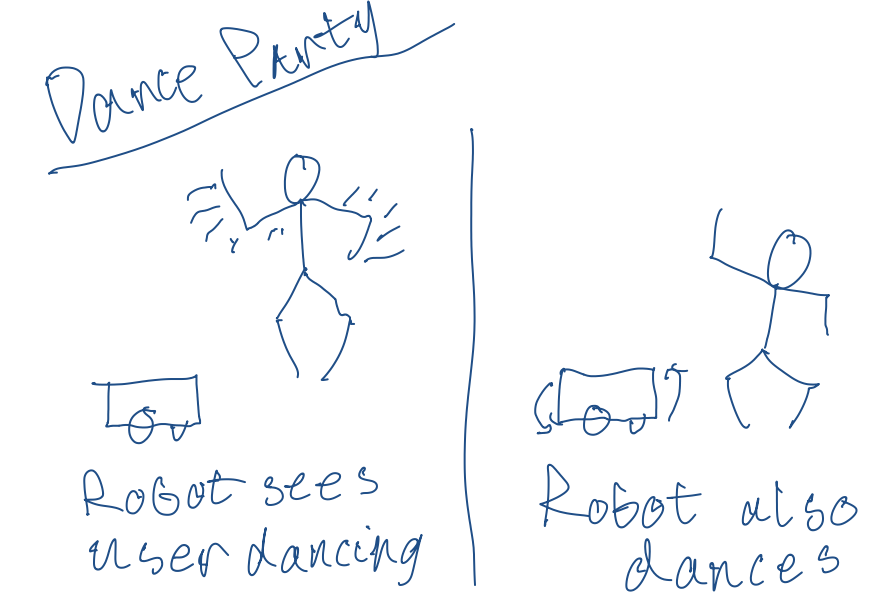 Dance Party
Robot sees
user dancing
Robot also
dances